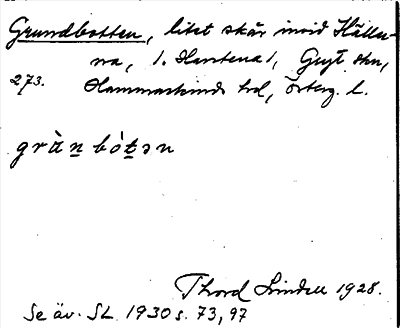 Grundbotten, litet skär invid Käller-
na, /. Harstena/, Gryt skn,
273. Hammarkinds hd, Österg. l.
gràn̲ bót̲ən
Thord Lindell 1928.
Se äv. SL 1930 s. 73, 97